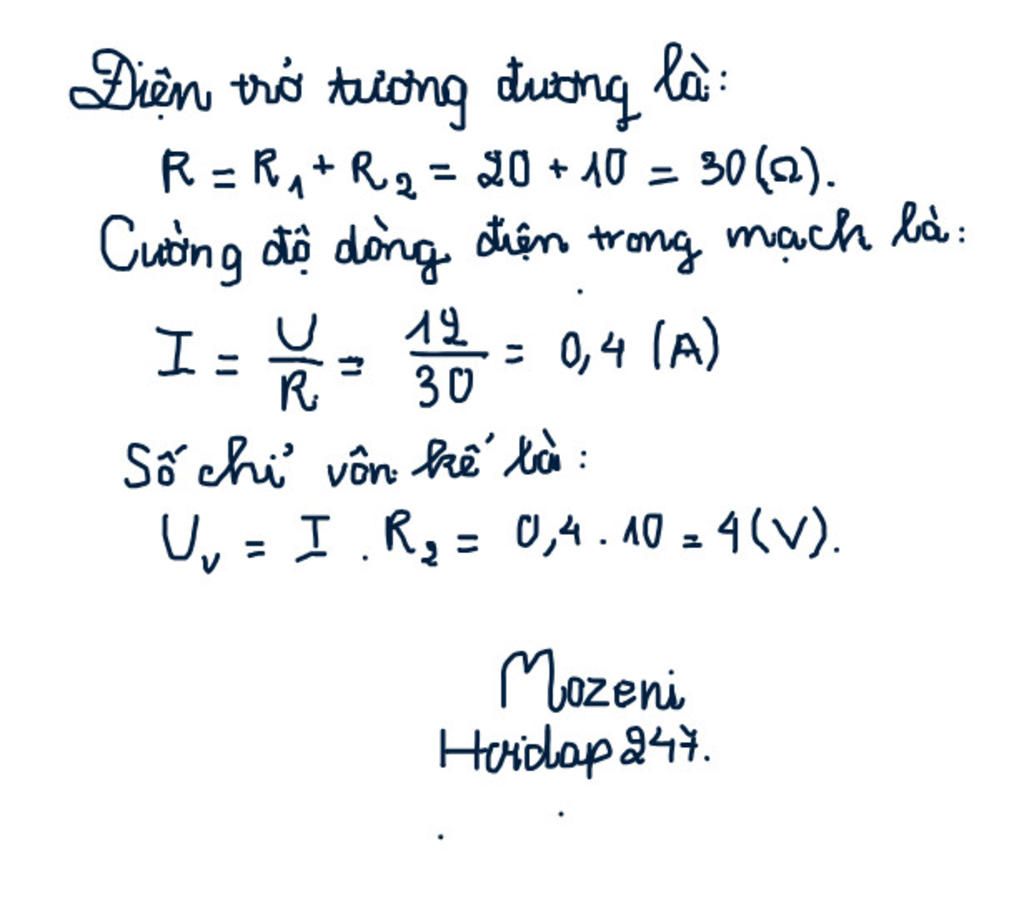 Điện trở tương đương là:
R = R₁ + R₂ = 20 + 10 = 30 (Ω).
Cường độ dòng điện trong mạch là:
I = U/R = 12/30 = 0,4 (A)
Số chỉ vôn kế là:
Uᵥ = I . R₂ = 0,4 . 10 = 4 (V).
Mozeni
Hoidap247.